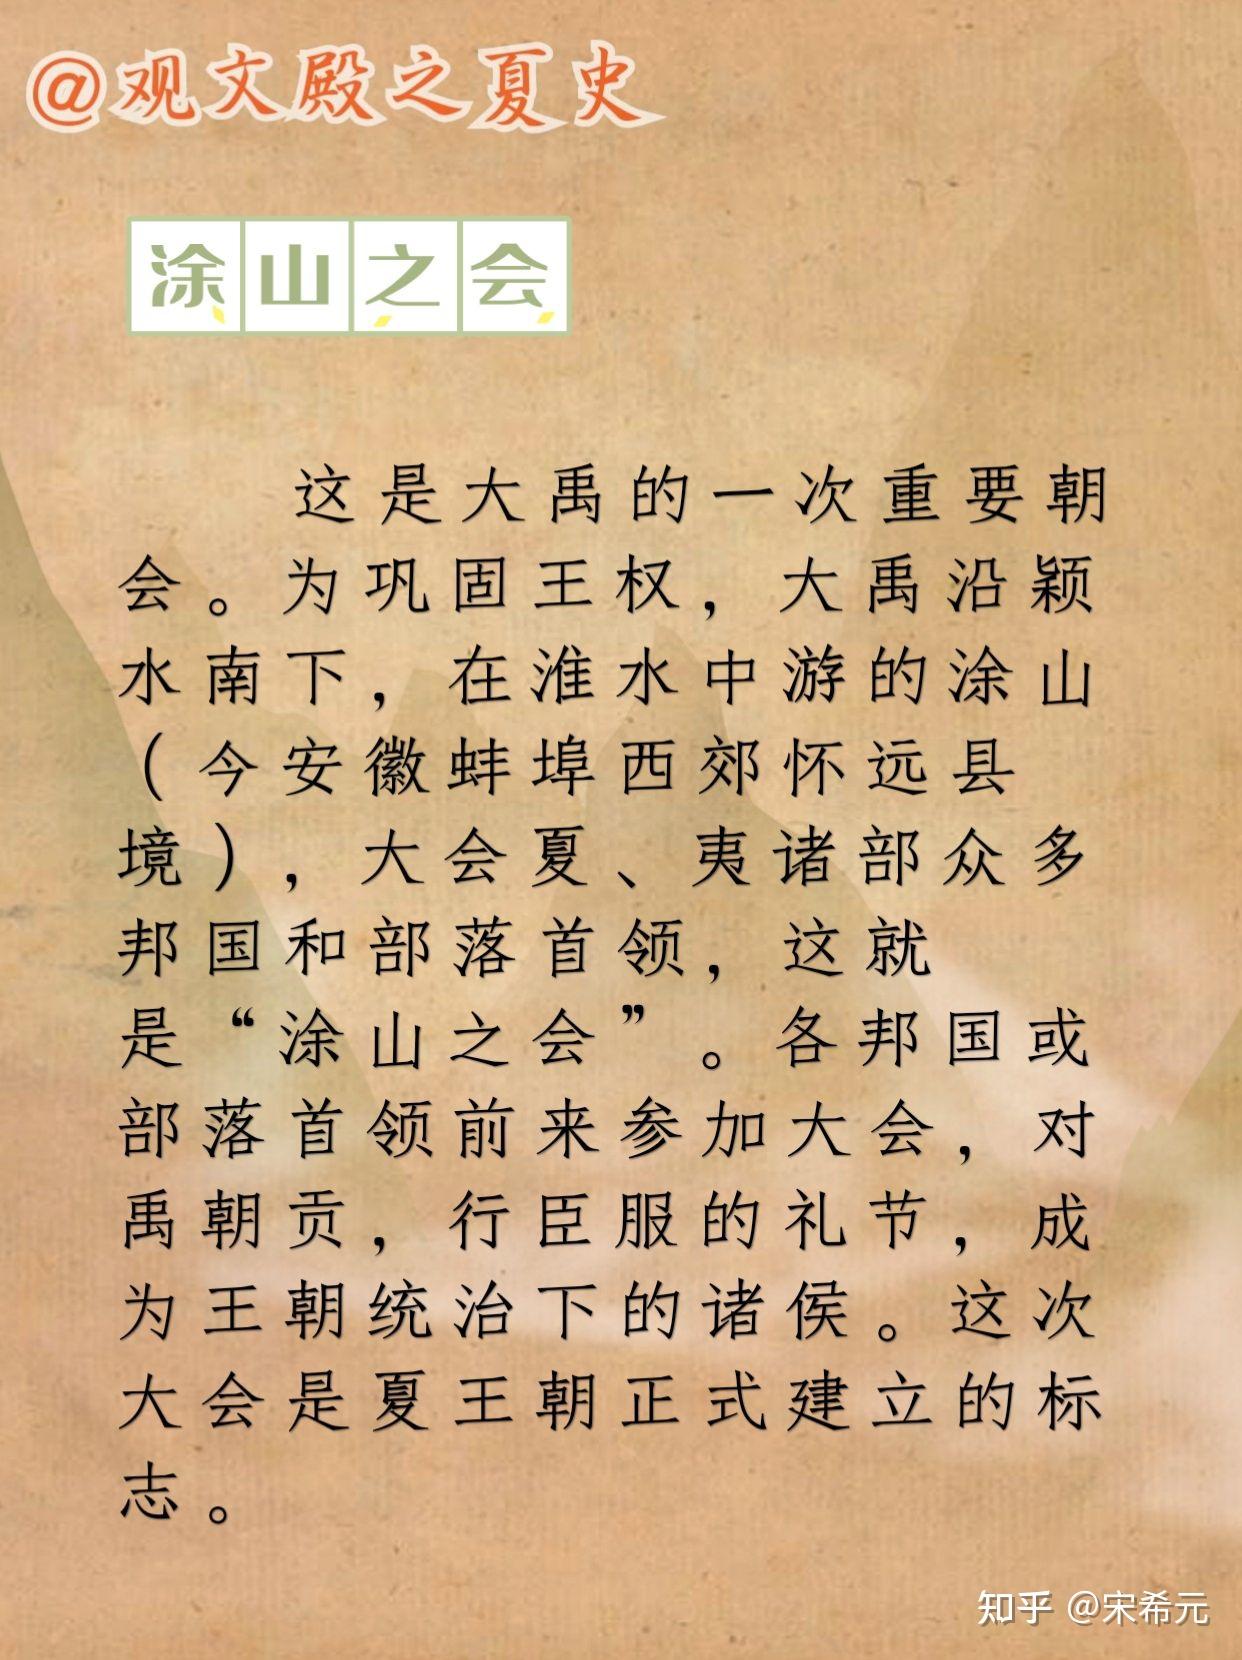 @观文殿之夏史
涂山之会
这是大禹的一次重要朝
会。为巩固王权，大禹沿颖
水南下，在淮水中游的涂山
（今安徽蚌埠西郊怀远县
境），大会夏、夷诸部众多
邦国和部落首领，这就
是“涂山之会”。各邦国或
部落首领前来参加大会，对
禹朝贡，行臣服的礼节，成
为王朝统治下的诸侯。这次
大会是夏王朝正式建立的标
志。
知乎 @宋希元